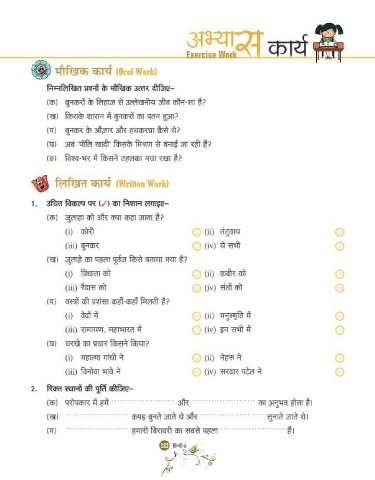 अभ्यास कार्य
Exercise Work
मौखिक कार्य (Oral Work)
निम्नलिखित प्रश्नों के मौखिक उत्तर दीजिए–
(क) बुनकरों के लिहाज से उल्लेखनीय जीव कौन-सा है?
(ख) किसके शासन में बुनकरों का पतन हुआ?
(ग) बुनकर के औज़ार और हथकरघा कैसे थे?
(घ) अब 'पोलि खादी' किसके मिश्रण से बनाई जा रही है?
(ङ) विश्व-भर में किसने तहलका मचा रखा है?
लिखित कार्य (Written Work)
1. उचित विकल्प पर (✓) का निशान लगाइए–
(क) जुलाहा को और क्या कहा जाता है?
(i) कोरी (ii) तंतुवाय
(iii) बुनकर (iv) ये सभी
(ख) जुलाहे का पहला पूर्वज किसे बताया गया है?
(i) विधाता को (ii) कबीर को
(iii) रैदास को (iv) संतों को
(ग) वस्त्रों की प्रशंसा कहाँ-कहाँ मिलती है?
(i) वेदों में (ii) मनुस्मृति में
(iii) रामायण, महाभारत में (iv) इन सभी में
(घ) चरखे का प्रचार किसने किया?
(i) महात्मा गांधी ने (ii) नेहरू ने
(iii) विनोबा भावे ने (iv) सरदार पटेल ने
2. रिक्त स्थानों की पूर्ति कीजिए–
(क) परोपकार में हमें ············ और ············ का अनुभव होता है।
(ख) ············ कपड़ बुनते जाते थे और ············ सुनाते जाते थे।
(ग) ············ हमारी बिरादरी का सबसे पहला ············ हैं।
हिन्दी-8